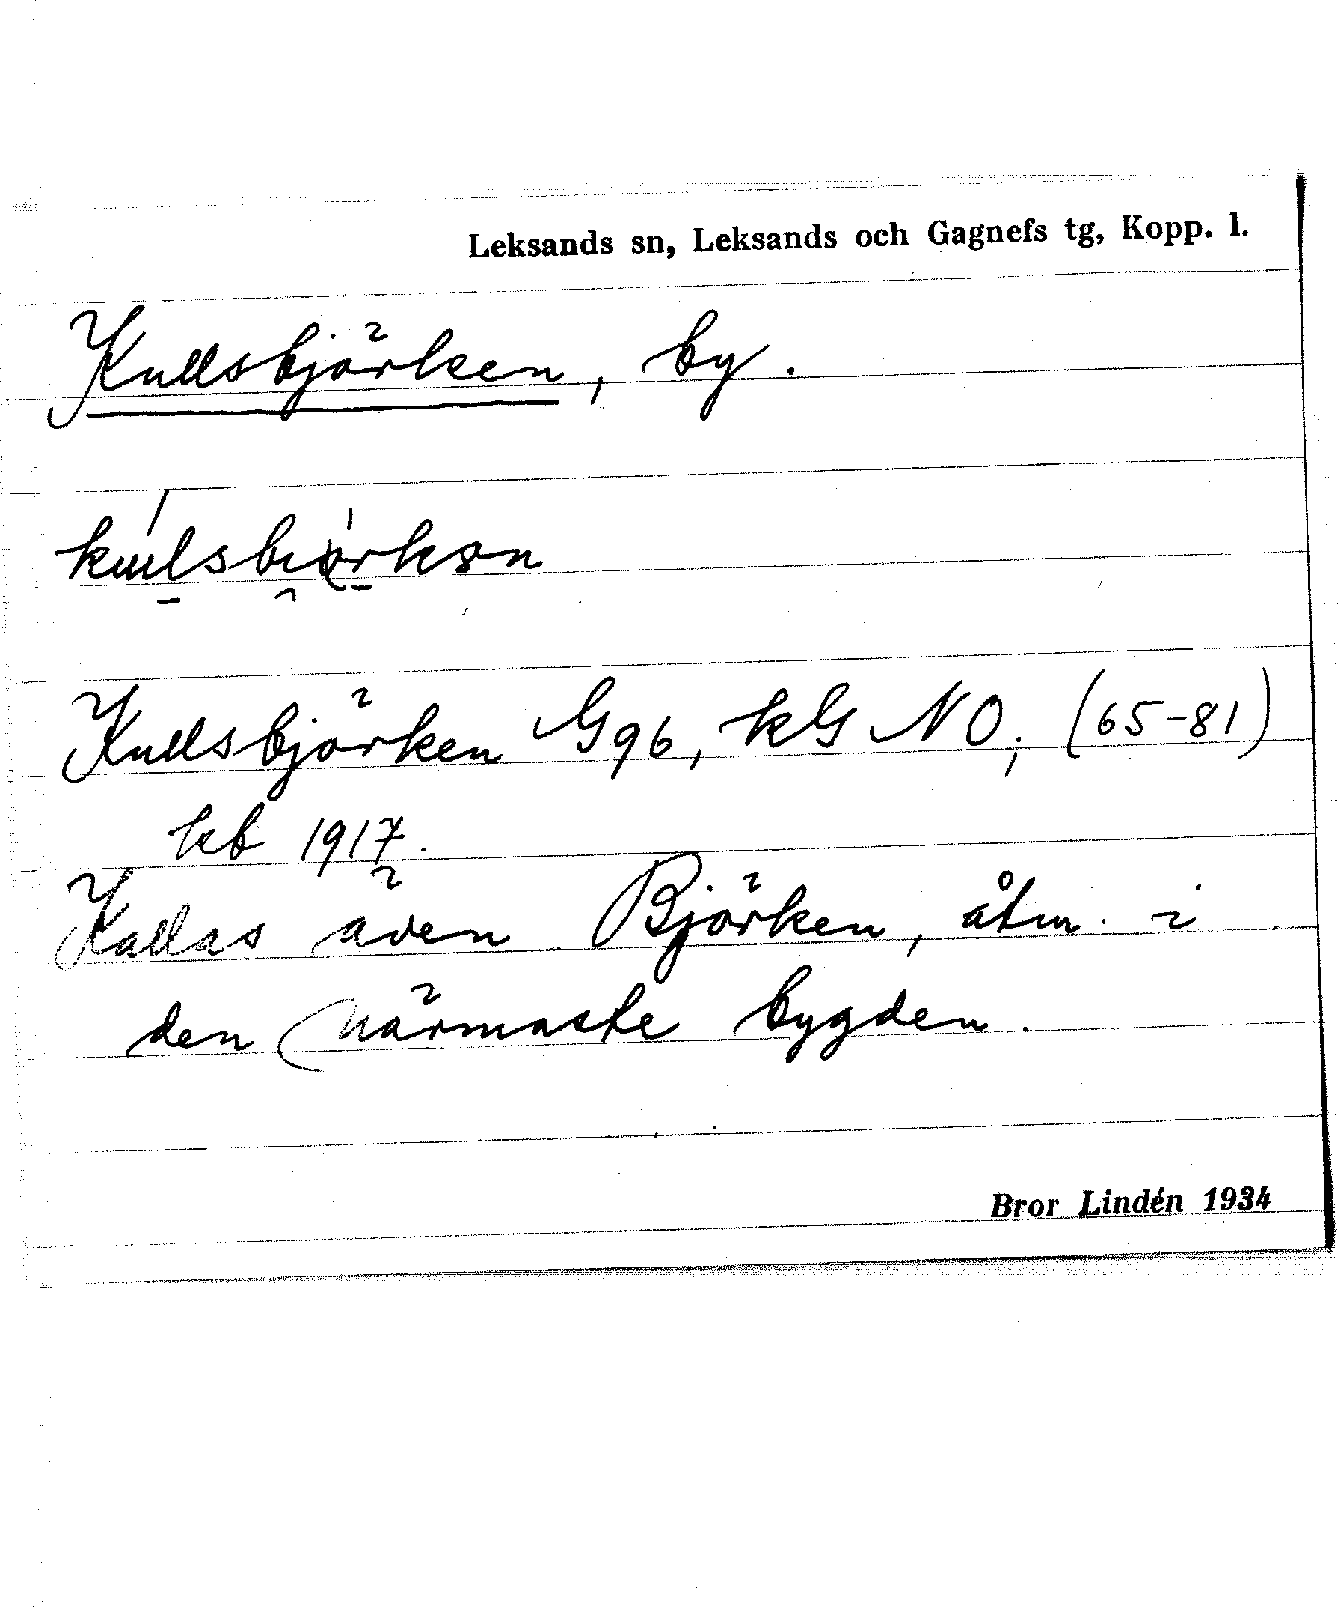 Leksands sn, Leksands och Gagnefs tg, Kopp. l.
Kullsbjörken, by.
Kullsbjörken G96, kG NO; (65-81)
kb 1917.
Kallas även Björken, åtm. i
den närmaste bygden.
Bror Lindén 1934